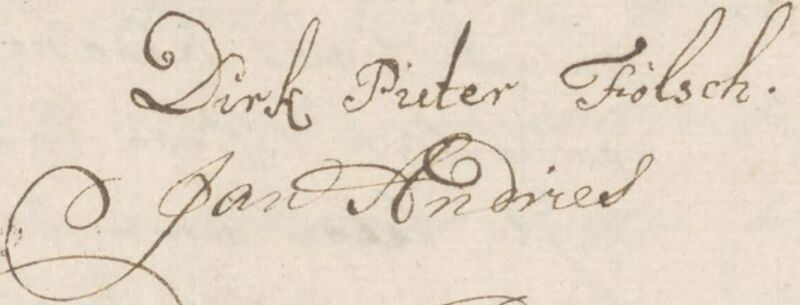 Dirk Pieter Fölsch.
Jan Andries